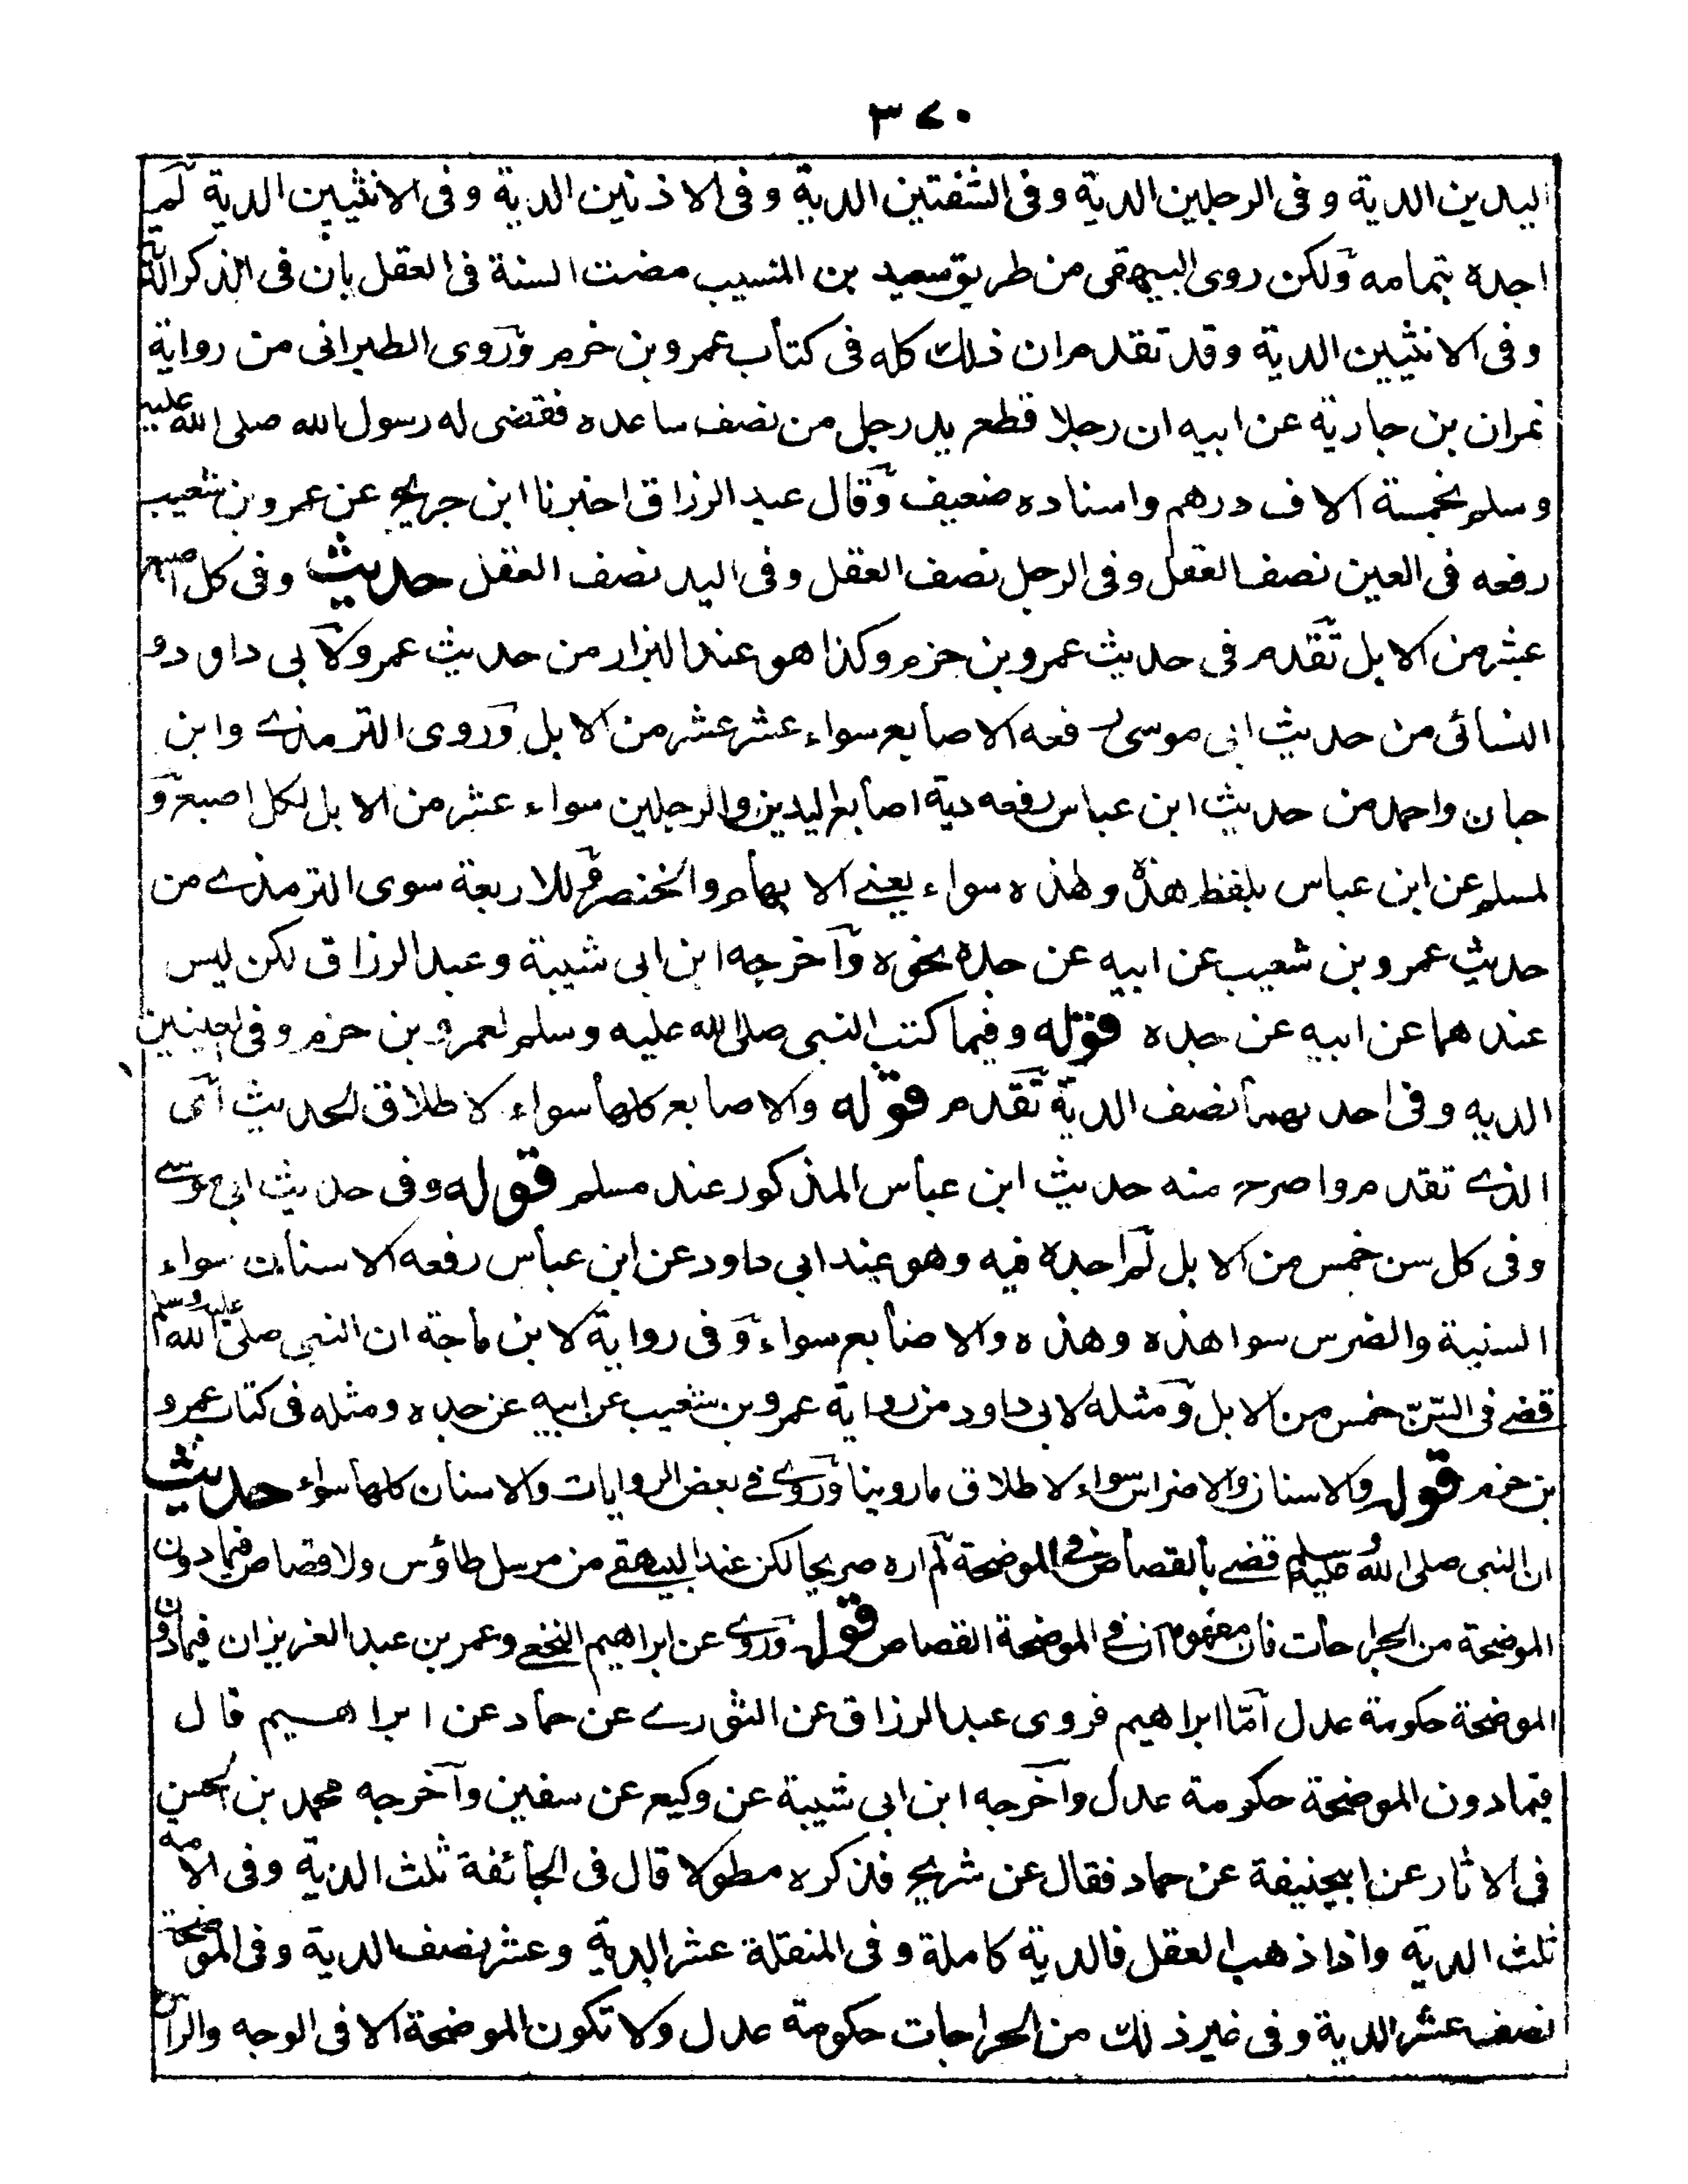 ٣٧٠
اليدين الدية وفى الرجلين الدية وفى الشفتين الدية وفى الاذنين الدية وفى الانثيين الدية لم
اجده بتمامه ولكن روى البيهقى من طريق سعيد بن المسيب مضت السنة فى العقل بان فى الذكر الدية
وفى الانثيين الدية وقد تقدم ان ذلك كله فى كتاب عمرو بن حزم وروى الطبرانى من رواية
نمران بن جارية عن ابيه ان رجلا قطع يد رجل من نصف ساعده فقضى له رسول الله صلى الله عليه
وسلم بخمسة الاف درهم واسناده ضعيف وقال عبد الرزاق اخبرنا ابن جريج عن عمرو بن شعيب
رفعه فى العين نصف العقل وفى الرجل نصف العقل وفى اليد نصف العقل حديث وفى كل اصبع
عشر من الابل تقدم فى حديث عمرو بن حزم وكذا هو عند البزار من حديث عمر ولابى داود و
النسائى من حديث ابى موسى رفعه الاصابع سواء عشر عشر من الابل وروى الترمذے وابن
حبان واحمد من حديث ابن عباس رفعه دية اصابع اليدين والرجلين سواء عشر من الابل لكل اصبع و
لمسلم عن ابن عباس بلفظ هذه وهذه سواء يعنے الابهام والخنصر وللاربعة سوى الترمذے من
حديث عمرو بن شعيب عن ابيه عن جده نحوه وآخرجه ابن ابى شيبة وعبد الرزاق لكن ليس
عندهما عن ابيه عن جده قوله وفيما كتب النبى صلى الله عليه وسلم لعمرو بن حزم وفى العينين
الديه وفى احدىهما نصف الدية تقدم قوله والاصابع كلها سواء لاطلاق الحديث آى
الذے تقدم واصرح منه حديث ابن عباس المذكور عند مسلم قوله وفى حديث ابى موسے
وفى كل سن خمس من الابل لم اجده فيه وهو عند ابى داود عن ابن عباس رفعه الاسنان سواء
السنية والضرس سوا هذه وهذه والاصابع سواء وفى رواية لابن ماجة ان النبى صلى الله عليه وسلم
قضے فى السن خمس من الابل ومثله لابى داود من رواية عمرو بن شعيب عن ابيه عن جده ومثله فى كتاب عمرو
بن حزم قوله والاسنان والاضراس سواء لاطلاق ما روينا وروے فے بعض الروايات والاسنان كلها سواء حديث
ان النبى صلى الله عليه وسلم قضے بالقصاص فے الموضحة لم اره صريحا لكن عند البيهقے من مرسل طاؤس ولا قصاص فيما دون
الموضحة من الجراحات فان مفهومه ان فے الموضحة القصاص قوله وروے عن ابراهيم النخعے وعمر بن عبد العزيز ان فيما دون
الموضحة حكومة عدل آما ابراهيم فروى عبد الرزاق عن الثورے عن حماد عن ابراهيم قال
فيما دون الموضحة حكومة عدل وآخرجه ابن ابى شيبة عن وكيع عن سفين وآخرجه محمد بن الحسن
فى الاثار عن ابيحنيفة عن حماد فقال عن شريح فذكره مطولا قال فى الجائفة ثلث الدية وفى الآمه
ثلث الديه واذا ذهب العقل فالدية كاملة وفى المنقلة عشر الدية وعشر نصف الدية وفى الموضحة
نصف عشر الدية وفى غير ذلك من الجراحات حكومة عدل ولا تكون الموضحة الا فى الوجه والراس